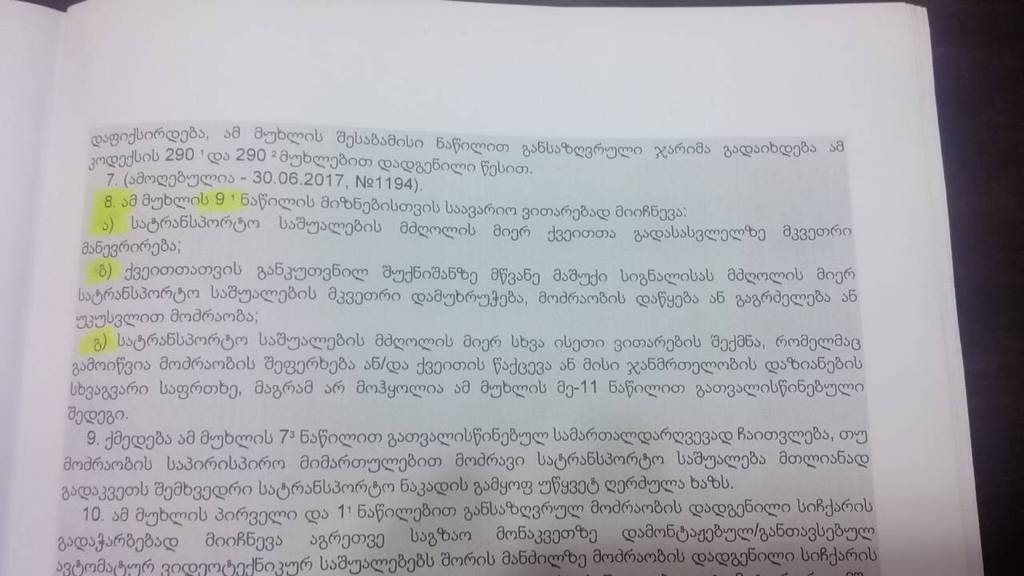 დაფიქსირდება, ამ მუხლის შესაბამისი ნაწილით განსაზღვრული ჯარიმა გადაიხდება ამ
კოდექსის 290 ¹ და 290 ² მუხლებით დადგენილი წესით.
7. (ამოღებულია - 30.06.2017, №1194).
8. ამ მუხლის 9 ¹ ნაწილის მიზნებისთვის საავარიო ვითარებად მიიჩნევა:
ა) სატრანსპორტო საშუალების მძღოლის მიერ ქვეითთა გადასასვლელზე მკვეთრი
მანევრირება;
ბ) ქვეითთათვის განკუთვნილ შუქნიშანზე მწვანე მაშუქი სიგნალისას მძღოლის მიერ
სატრანსპორტო საშუალების მკვეთრი დამუხრუჭება, მოძრაობის დაწყება ან გაგრძელება ან
უკუსვლით მოძრაობა;
გ) სატრანსპორტო საშუალების მძღოლის მიერ სხვა ისეთი ვითარების შექმნა, რომელმაც
გამოიწვია მოძრაობის შეფერხება ან/და ქვეითის წაქცევა ან მისი ჯანმრთელობის დაზიანების
სხვაგვარი საფრთხე, მაგრამ არ მოჰყოლია ამ მუხლის მე-11 ნაწილით გათვალისწინებული
შედეგი.
9. ქმედება ამ მუხლის 7³ ნაწილით გათვალისწინებულ სამართალდარღვევად ჩაითვლება, თუ
მოძრაობის საპირისპირო მიმართულებით მოძრავი სატრანსპორტო საშუალება მთლიანად
გადაკვეთს შემხვედრი სატრანსპორტო ნაკადის გამყოფ უწყვეტ ღერძულა ხაზს.
10. ამ მუხლის პირველი და 1¹ ნაწილებით განსაზღვრულ მოძრაობის დადგენილი სიჩქარის
გადაჭარბებად მიიჩნევა აგრეთვე საგზაო მონაკვეთზე დამონტაჟებულ/განთავსებულ
ავტომატურ ვიდეოტექნიკურ საშუალებებს შორის მანძილზე მოძრაობის დადგენილი სიჩქარის